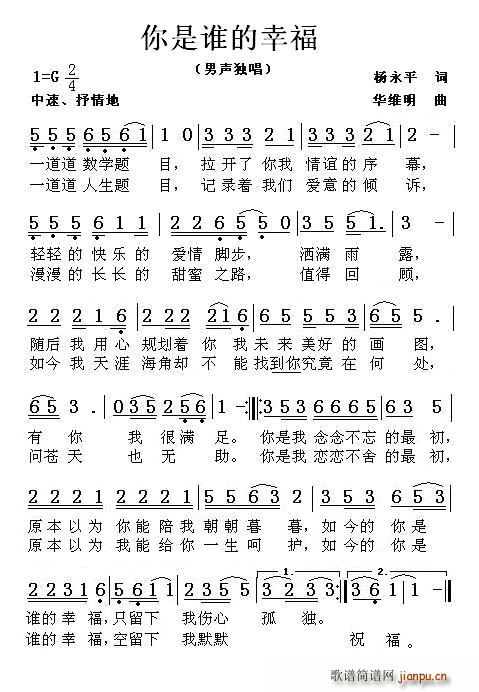 你是谁的幸福
（男声独唱）
1=G 2/4
杨永平 词
中速、抒情地
华维明 曲
5 5 5 5 6 5 6 1 | 1 0 | 3 3 3 3 2 1 | 3 3 2 6 1 | 2 - |
一道道 数学题 目，拉开了 你我 情谊的序 幕，
一道道 人生题 目，记录着 我们 爱意的倾 诉，
5 5 5 5 6 1 1 | 2 2 6 5 | 5 0 | 3 5 5 | 5 1. |
轻轻的 快乐的 爱情 脚步， 洒满 雨 露，
漫漫的 长长的 甜蜜 之路， 值得 回 顾，
2 2 2 1 6 | 2 2 2 2 | 2 1 6 | 6 5 5 5 | 6 5. |
随后 我 用心 规划着 你 我 未来 美好的 画 图，
如今 我 天涯 海角却 不 能 找到你究竟 在 何 处，
6 5 3 . | 0 3 5 2 5 6 | 1 - :‖: 3 5 3 5 | 6 6 6 5 | 6 3 5 |
有 你 我 很满 足。你是我 念念不忘的 最 初，
问苍 天 也 无 助。你是我 恋恋不舍的 最 初，
2 2 2 2 1 | 2 2 2 1 | 5 5 6 3 | 2 3 5 3 | 6 5 3 |
原本以为 你能 陪我 朝朝 暮暮，如今的 你是
原本以为 我能 给你 一生 呵 护，如今的 你是
2 2 3 1 6 | 5 6 1 2 1 | 5 5 5 3 | 1. 3 2 3 | 5 - :‖ 2. 3 2 1 | 1 - ‖
谁的幸 福，只留下 我伤心 孤 独。
谁的幸 福，空留下 我默默 祝 福。
歌谱简谱网
jianpu.cn